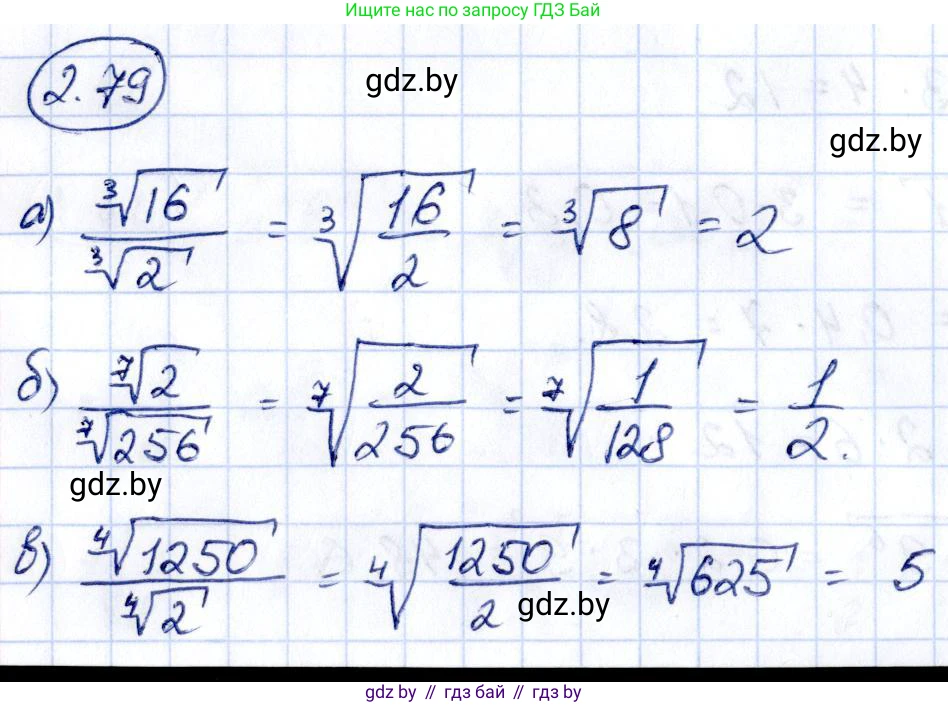 Ищите нас по запросу ГДЗ Бай
2.79
gdz.by
gdz.by
а) ∛16 / ∛2 = ∛(16/2) = ∛8 = 2
б) ⁷√2 / ⁷√256 = ⁷√(2/256) = ⁷√(1/128) = 1/2.
gdz.by
в) ⁴√1250 / ⁴√2 = ⁴√(1250/2) = ⁴√625 = 5
gdz.by
gdz by // гдз бай // гдз by